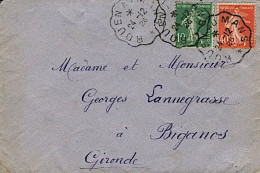 ROUEN A
MANS
Madame et Monsieur
Georges Lannegrasse
à
Biganos
Gironde